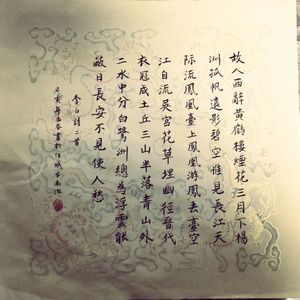 故人西辭黃鶴樓煙花三月下楊
洲孤帆遠影碧空惟見長江天
際流鳳凰臺上鳳凰游鳳去臺空
江自流吳宮花草埋幽徑晉代
衣冠成土丘三山半落青山外
二水中分白鷺洲總為浮雲能
蔽日長安不見使人愁
李白詩二首
己亥年孟春書於任城古南池